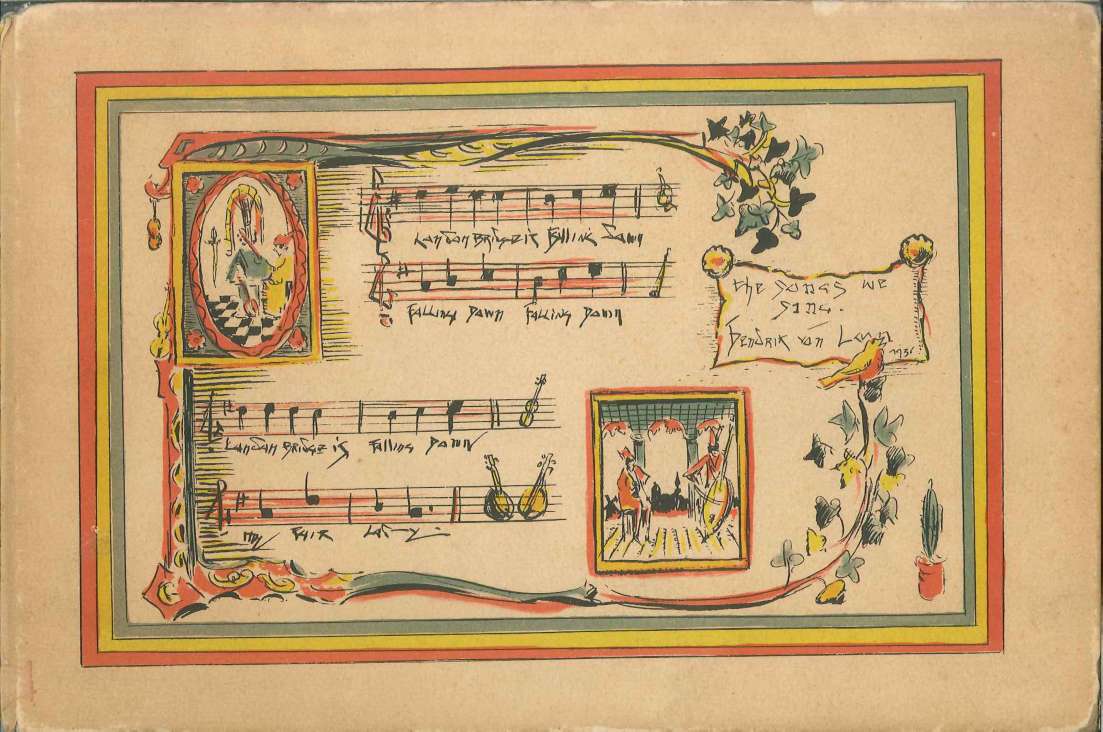 London Bridge is Falling Down
Falling Down Falling Down
the songs we
sing.
Hendrik van Loon
London Bridge is Falling Down
My Fair Lady.